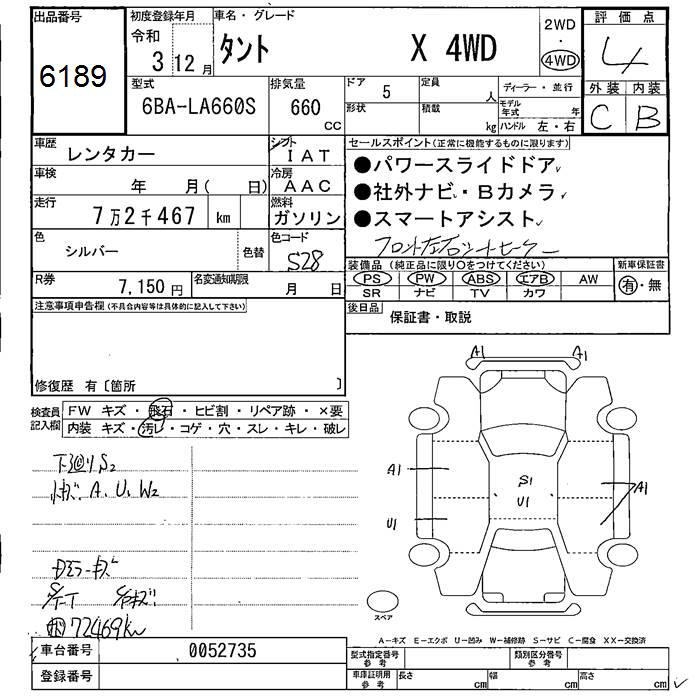 出品番号
6189
初度登録年月
令和
3 12月
車名・グレード
タント X 4WD
2WD
・
4WD
評価点
4
外装 内装
C B
型式
6BA-LA660S
排気量
660 CC
ドア 5
定員 人
形状
積載 kg
ディーラー・並行
モデル年式 年
ハンドル 左・右
車歴
レンタカー
シフト
IAT
車検
年 月( 日)
冷房
AAC
走行
7万2千467 km
燃料
ガソリン
色
シルバー
色替
色コード
S28
R券
7,150円
名変通知期限
月 日
セールスポイント(正常に機能するものに限ります)
●パワースライドドア
●社外ナビ・Bカメラ
●スマートアシスト
フロント左右シートヒーター
装備品(純正品に限り○をつけてください)
PS PW ABS エアB AW
SR ナビ TV カワ
新車保証書
有・無
後日品
保証書・取説
注意事項申告欄(不具合内容等は具体的に記入して下さい)
修復歴 有〔箇所 〕
検査員記入欄
FW キズ・飛石・ヒビ割・リペア跡・×要
内装 キズ・汚レ・コゲ・穴・スレ・キレ・破レ
下廻りS2
A、U、W2
72469km
A1 A1
A1
U1
S1
U1
A1
スペア
A－キズ E－エクボ U－凹み W－補修跡 S－サビ C－腐食 XX－交換済
車台番号
0052735
登録番号
型式指定番号
参考
類別区分番号
参考
車庫証明用
参考
長さ cm
幅 cm
高さ cm